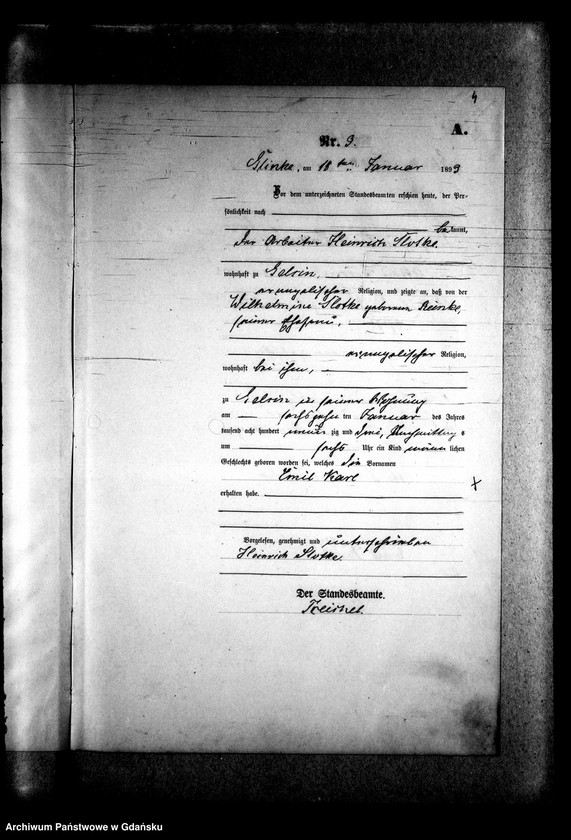 4
A.
Nr. 9.
Glinke, am 18 ten Januar 1893
Vor dem unterzeichneten Standesbeamten erschien heute, der Per-
sönlichkeit nach
bekannt,
der Arbeiter Heinrich Slotke.
wohnhaft zu Gelsin.
evangelischer Religion, und zeigte an, daß von der
Wilhelmine Slotke geborenen Reinke,
seiner Ehefrau,
evangelischer Religion,
wohnhaft bei ihm,
zu Gelsin in seiner Wohnung
am sechszehnten Januar des Jahres
tausend acht hundert neunzig und drei, Nachmittags
um sechs Uhr ein Kind männlichen
Geschlechts geboren worden sei, welches die Vornamen
Emil Karl
erhalten habe.
Vorgelesen, genehmigt und unterschrieben
Heinrich Slotke.
Der Standesbeamte.
Archiwum Państwowe w Gdańsku